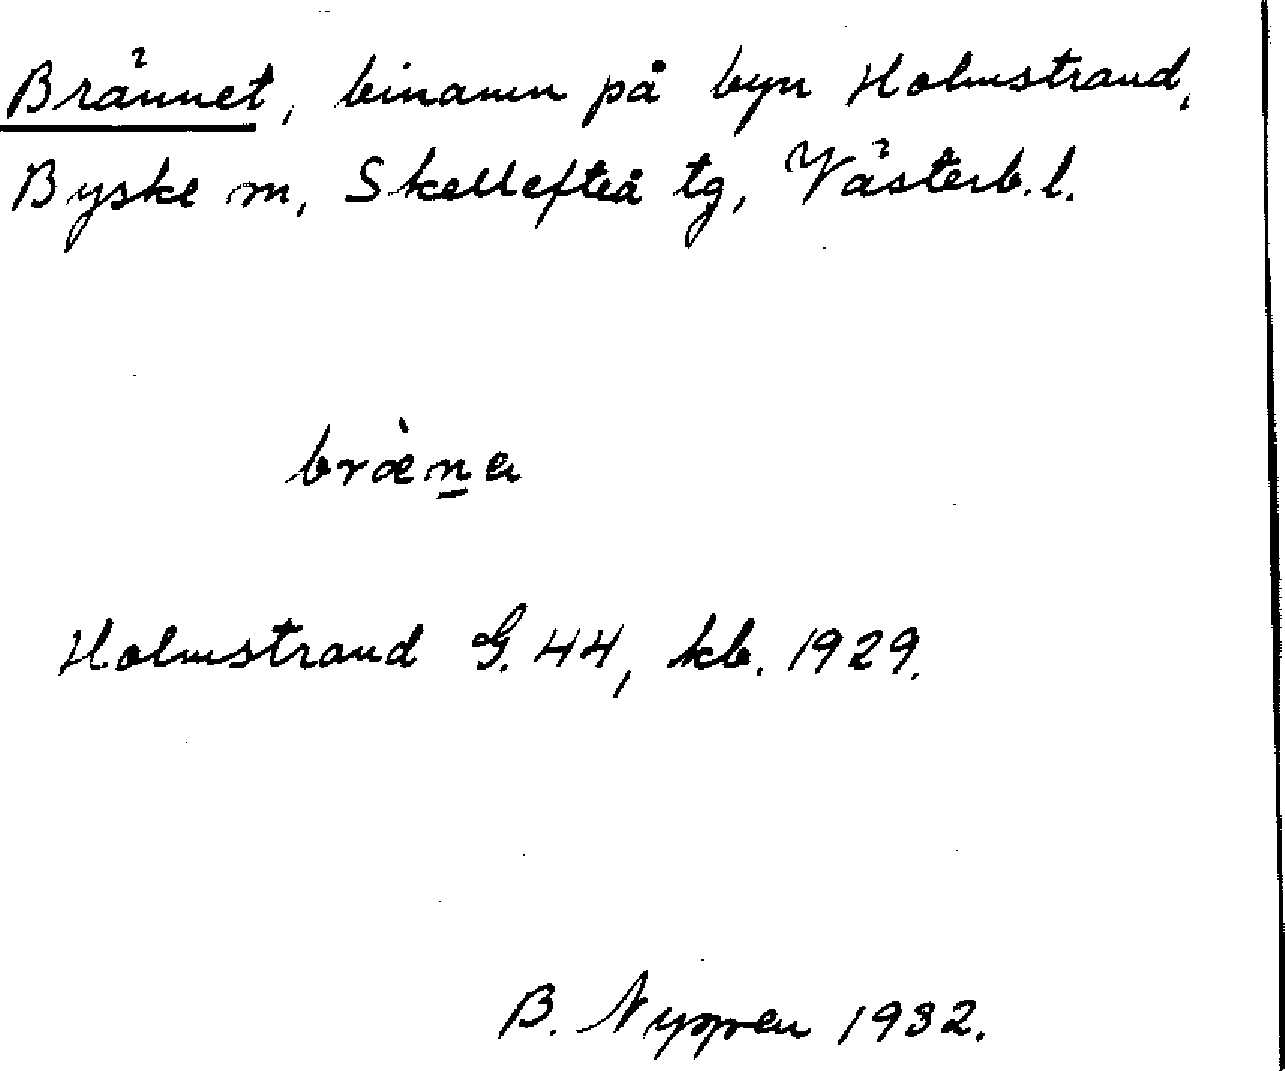 Brännet, binamn på byn Holmstrand,
Byske sn, Skellefteå tg, Västerb. l.
bræ̀n̲a
Holmstrand G. 44, kb. 1929.
B. Nyppen 1932.